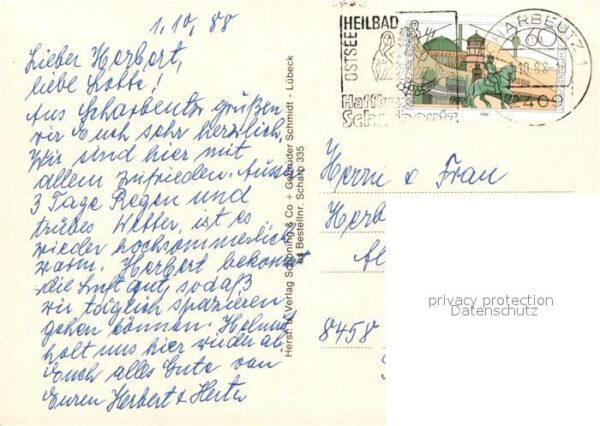 1.10.88
Lieber Herbert,
liebe Lotte!
Aus Scharbeutz grüßen
wir Euch sehr herzlich.
Wir sind hier mit
allem zufrieden. Ausser
3 Tage Regen und
trübes Wetter, ist es
wieder hochsommerlich
warm. Herbert bekommt
die Luft gut, sodaß
wir täglich spazieren
gehen können. Helmut
holt uns hier wieder ab
Euch alles Gute von
Euren Herbert &
Herst. u. Verlag Schöning & Co + Gebrüder Schmidt - Lübeck
Bestellnr. Scharb 335
OSTSEE
HEILBAD
Haffkrug
Scharbeutz
SCHARBEUTZ 1
2409
60
Herrn & Frau
Herb
8458
privacy protection
Datenschutz